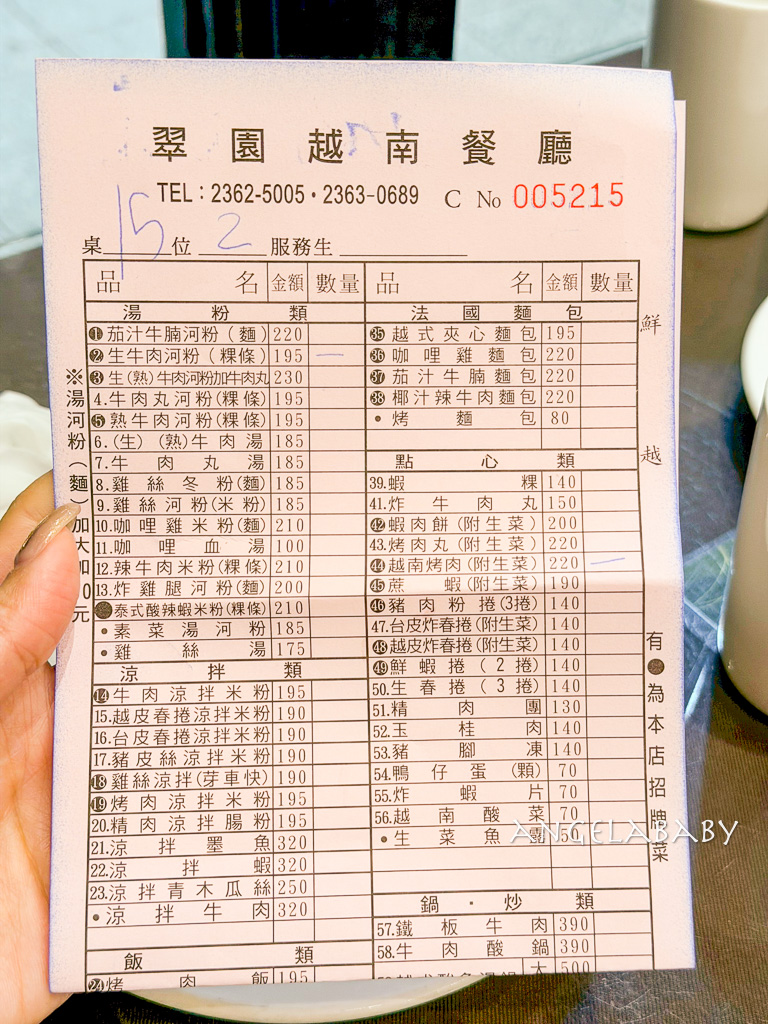 翠園越南餐廳
TEL：2362-5005・2363-0689 C No 005215
桌 15 位 2 服務生
品名 金額 數量
湯粉類
❶茄汁牛腩河粉(麵) 220
❷生牛肉河粉(粿條) 195 一
❸生(熟)牛肉河粉加牛肉丸 230
4.牛肉丸河粉(粿條) 195
❺熟牛肉河粉(粿條) 195
6.(生)(熟)牛肉湯 185
7.牛肉丸湯 185
8.雞絲冬粉(麵) 185
9.雞絲河粉(米粉) 185
10.咖哩雞米粉(麵) 210
11.咖哩血湯 100
12.辣牛肉米粉(粿條) 210
13.炸雞腿河粉(麵) 200
●泰式酸辣蝦米粉(粿條) 210
•素菜湯河粉 185
•雞絲湯 175
涼拌類
⓮牛肉涼拌米粉 195
15.越皮春捲涼拌米粉 190
16.台皮春捲涼拌米粉 190
17.豬皮絲涼拌米粉 190
⓲雞絲涼拌(芽車快) 190
⓳烤肉涼拌米粉 195
20.精肉涼拌腸粉 195
21.涼拌墨魚 320
22.涼拌蝦 320
23.涼拌青木瓜絲 250
•涼拌牛肉 320
飯類
24烤肉飯 195
※湯河粉(麵)加大加0元
品名 金額 數量
法國麵包
35越式夾心麵包 195
36咖哩雞麵包 220
37茄汁牛腩麵包 220
38椰汁辣牛肉麵包 220
•烤麵包 80
點心類
39.蝦粿 140
41.炸牛肉丸 150
42蝦肉餅(附生菜) 200
43.烤肉丸(附生菜) 220
44越南烤肉(附生菜) 220 一
45蔗蝦(附生菜) 190
46豬肉粉捲(3捲) 140
47.台皮炸春捲(附生菜) 140
48越皮炸春捲(附生菜) 140
49鮮蝦捲(2捲) 140
50.生春捲(3捲) 140
51.精肉團 130
52.玉桂肉 140
53.豬腳凍 140
54.鴨仔蛋(顆) 70
55.炸蝦片 70
56.越南酸菜 70
•生菜魚露 50
鍋・炒類
57.鐵板牛肉 390
58.牛肉酸鍋 390
大 500
鮮越
有●為本店招牌菜
ANGELABABY